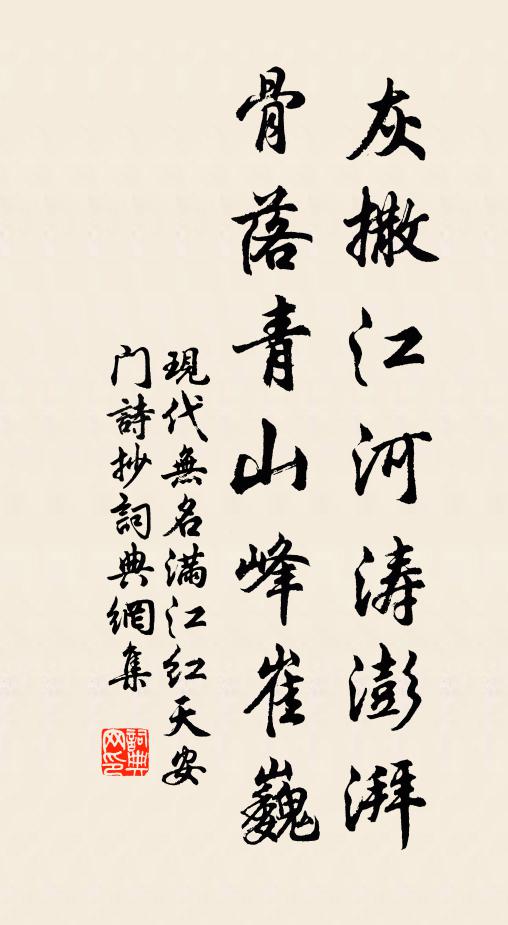 灰撒江河涛澎湃
骨落青山峰崔巍
現代無名满江红天安
门詩抄詞典網集
詞典网印